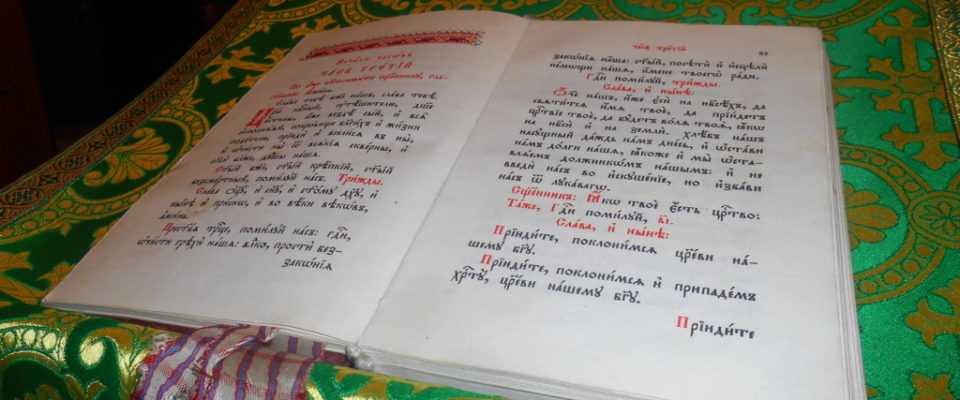 Начало часѡвъ
Часъ трє́тїй
По є҆́же возгласи́ти сщ҃е́нникꙋ, гла-
го́лемъ: А҆ми́нь.
Сла́ва тебѣ̀ бж҃е на́шъ, сла́ва тебѣ̀.
Цр҃ю̀ нбⷭ҇ный, ᲂу҆тѣ́шителю, дш҃е
и҆́стины, и҆́же вездѣ̀ сы́й, и҆ всѧ̑
и҆сполнѧ́ѧй, сокро́вище бл҃ги́хъ и҆ жи́зни
пода́телю, прїидѝ и҆ всели́сѧ въ ны̀,
и҆ ѡ҆чи́сти ны̀ ѿ всѧ́кїѧ сквє́рны, и҆
сп҃сѝ бл҃же дꙋ́шы на́шѧ.
Ст҃ы́й бж҃е, ст҃ы́й крѣ́пкїй, ст҃ы́й
безсме́ртный, поми́лꙋй на́съ. Три́жды.
Сла́ва ѻ҆ц҃ꙋ̀, и҆ сн҃ꙋ, и҆ ст҃о́мꙋ дх҃ꙋ, и҆
ны́нѣ и҆ при́снѡ, и҆ во вѣ́ки вѣкѡ́въ,
а҆ми́нь.
Прест҃а́ѧ трⷪ҇це, поми́лꙋй на́съ: гдⷭ҇и,
ѡ҆чи́сти грѣхѝ на́шѧ: влⷣко, простѝ без-
закѡ́нїѧ
Ча́съ тре́тїй
закѡ́нїѧ на́ша: ст҃ы́й, посѣтѝ и҆ и҆сцѣлѝ
не́мѡщи на́шѧ, и҆́мене твоегѡ̀ ра́ди.
Гдⷭ҇и поми́лꙋй, три́жды.
Сла́ва, и҆ ны́нѣ:
Ѻ҆́ч҃е на́шъ, и҆́же є҆сѝ на нб҃сѣ́хъ, да
свѧти́тсѧ и҆́мѧ твоѐ, да прїи́детъ
црⷭ҇твїе твоѐ, да бꙋ́детъ во́лѧ твоѧ̀, ꙗ҆́кѡ
на нб҃сѝ и҆ на землѝ. Хлѣ́бъ на́шъ
насꙋ́щный да́ждь на́мъ дне́сь, и҆ ѡ҆ста́ви
на́мъ до́лги на́шѧ, ꙗ҆́коже и҆ мы̀ ѡ҆ста-
влѧ́емъ должникѡ́мъ на́шымъ: и҆ не
введѝ на́съ во и҆скꙋше́нїе, но и҆зба́ви
на́съ ѿ лꙋка́вагѡ.
Сщ҃е́нникъ: Ꙗ҆́кѡ твоѐ є҆́сть црⷭ҇тво:
Та́же, Гдⷭ҇и поми́лꙋй, в҃і.
Сла́ва, и҆ ны́нѣ:
Прїиди́те, поклони́мсѧ цр҃е́ви на́-
шемꙋ бг҃ꙋ.
Прїиди́те, поклони́мсѧ и҆ припаде́мъ
хрⷭ҇тꙋ̀, цр҃е́ви на́шемꙋ бг҃ꙋ.
Прїиди́те